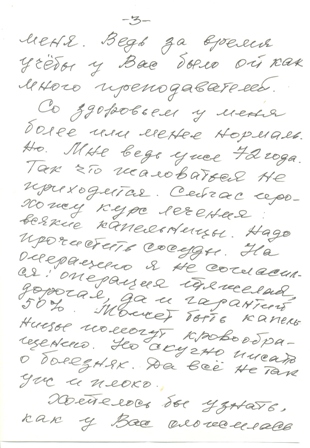 -3-
меня. Ведь за время
учёбы у Вас было ой как
много преподавателей.
Со здоровьем у меня
более или менее нормаль.
но. Мне ведь уже 72 года.
Так что жаловаться не
приходится. Сейчас про-
хожу курс лечения:
всякие капельницы. Надо
прочистить сосуды. На
операцию я не согласил-
ся: операция тяжелая,
дорогая, да и гарантий
50%. Может быть капель
ницы помогут кровообра-
щению. Но скучно писать
о болезнях. Да всё не так
уж и плохо.
Хотелось бы узнать,
как у Вас сложилась